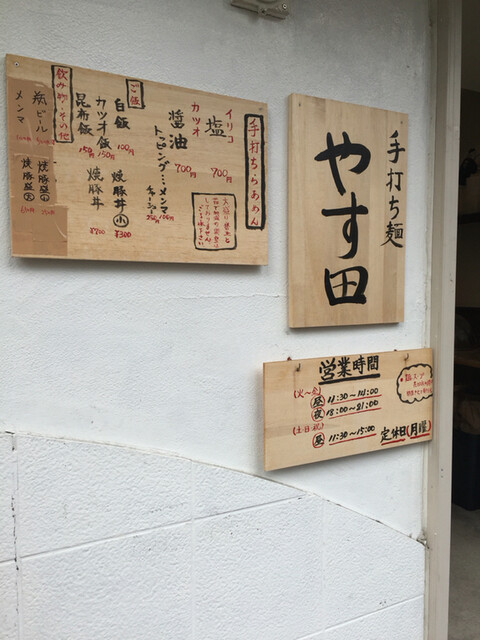 手打ち・らあめん
イリコ 塩 700円
カツオ 醤油 700円
トッピング…メンマ 100円
チャーシュー 250円
ご飯
白飯 100円
カツオ飯 150円
昆布飯 150円
焼豚丼 小 ¥300
焼豚丼 ¥700
飲み物・その他
瓶ビール
メンマ
焼豚盛 小
焼豚盛 大
手打ち麺
やす田
営業時間
(火〜金)
昼 11:30〜14:00
夜 18:00〜21:00
(土日祝)
昼 11:30〜15:00
定休日(月曜)